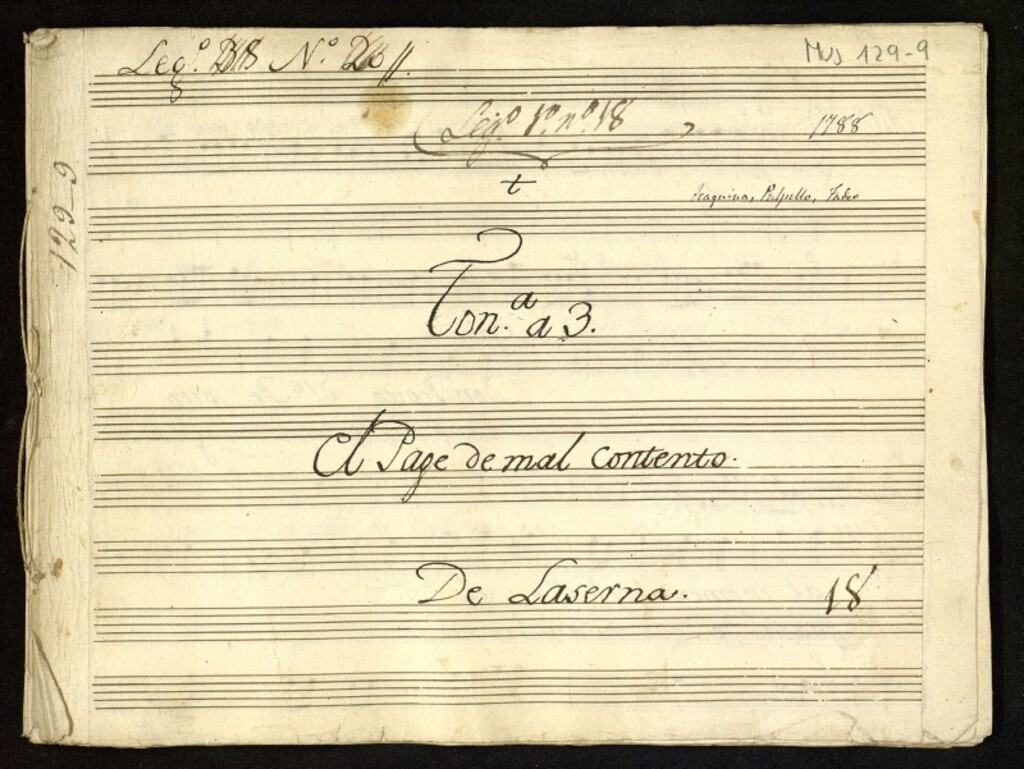 Leg.º Nº
MUS 129-9
Leg.º 1º nº 18
1788
t
Joaquina, Pulpillo, Tadeo
129-9
Ton.ª a 3.
El Page de mal contento.
De Laserna.
18